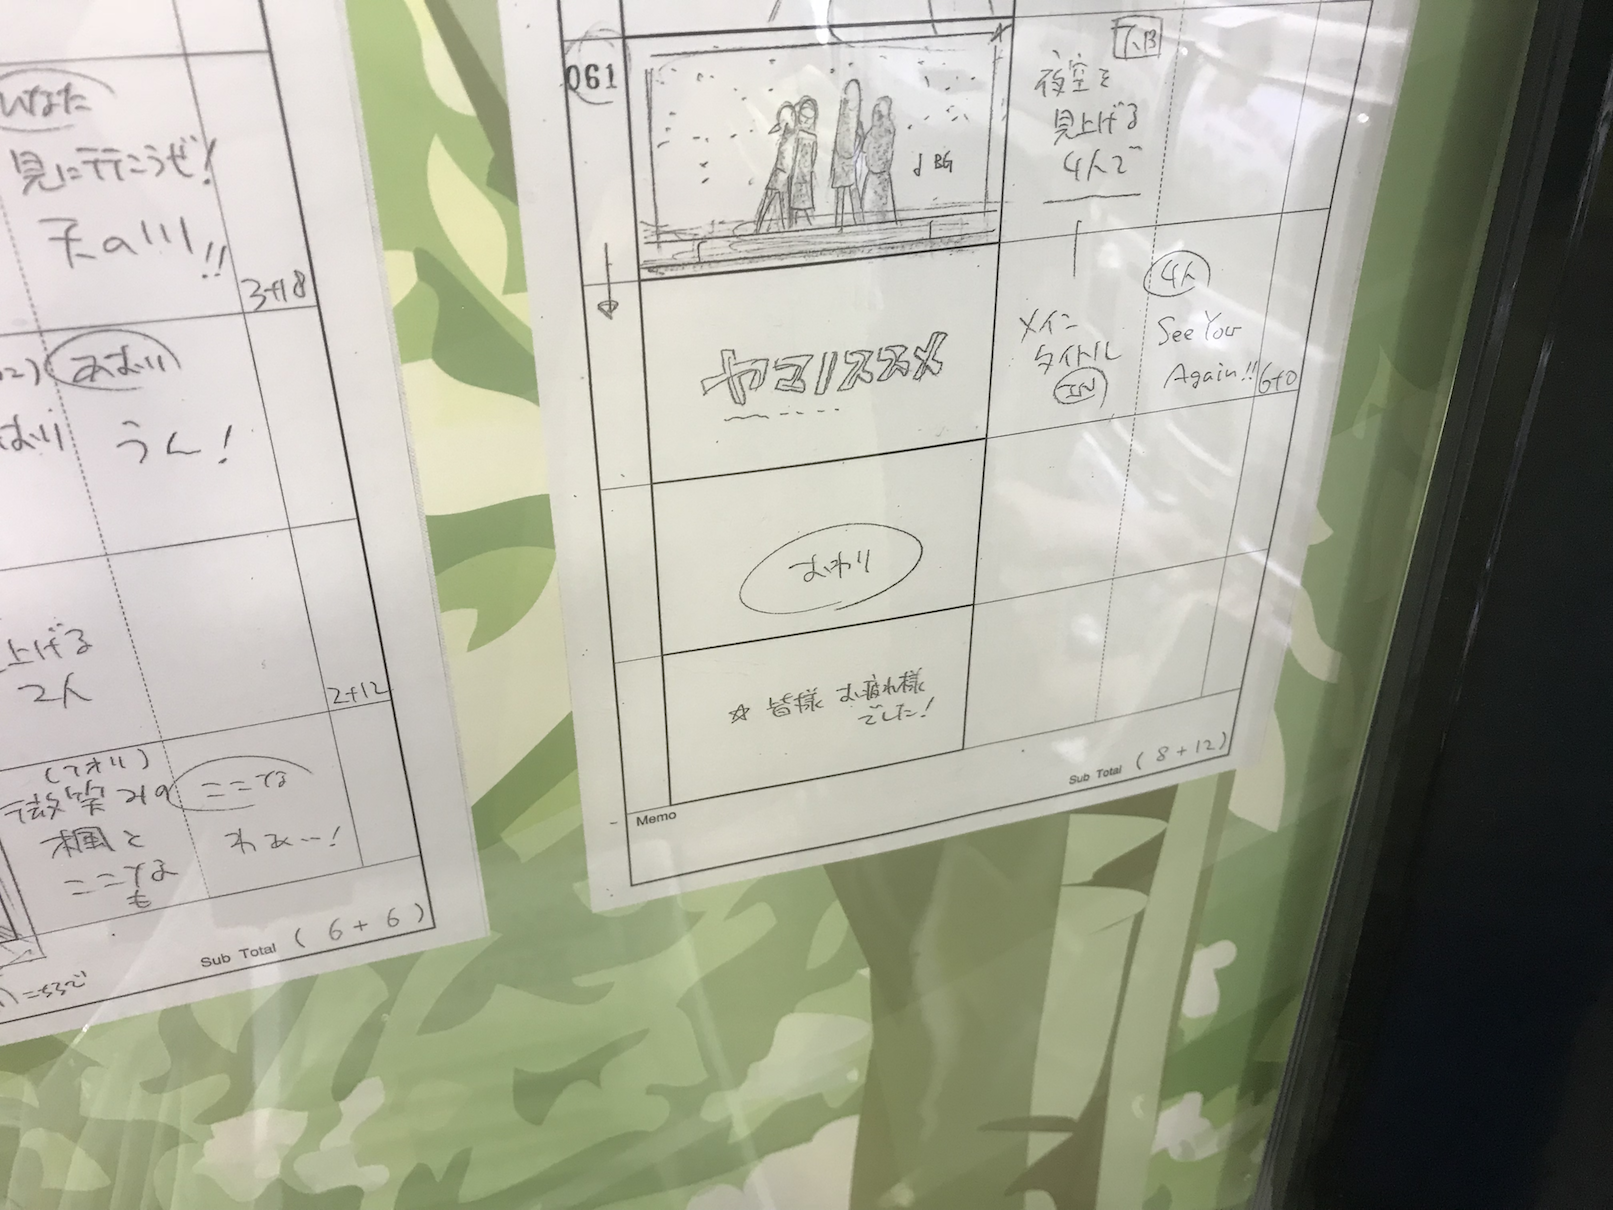 ひなた
見に行こうぜ!
天の川!!
3+18
あおい
うん!
上げる
2人
2+12
(アオリ)
ここな
楓と
ここな
も
わぁー!
Sub Total ( 6 + 6 )
061
BG
T.B
夜空を
見上げる
4人で
ヤマノススメ
メイン
タイトル
IN
4人
See You
Again!!
6+0
おわり
☆ 皆様 お疲れ様
でした!
Sub Total ( 8 + 12 )
Memo